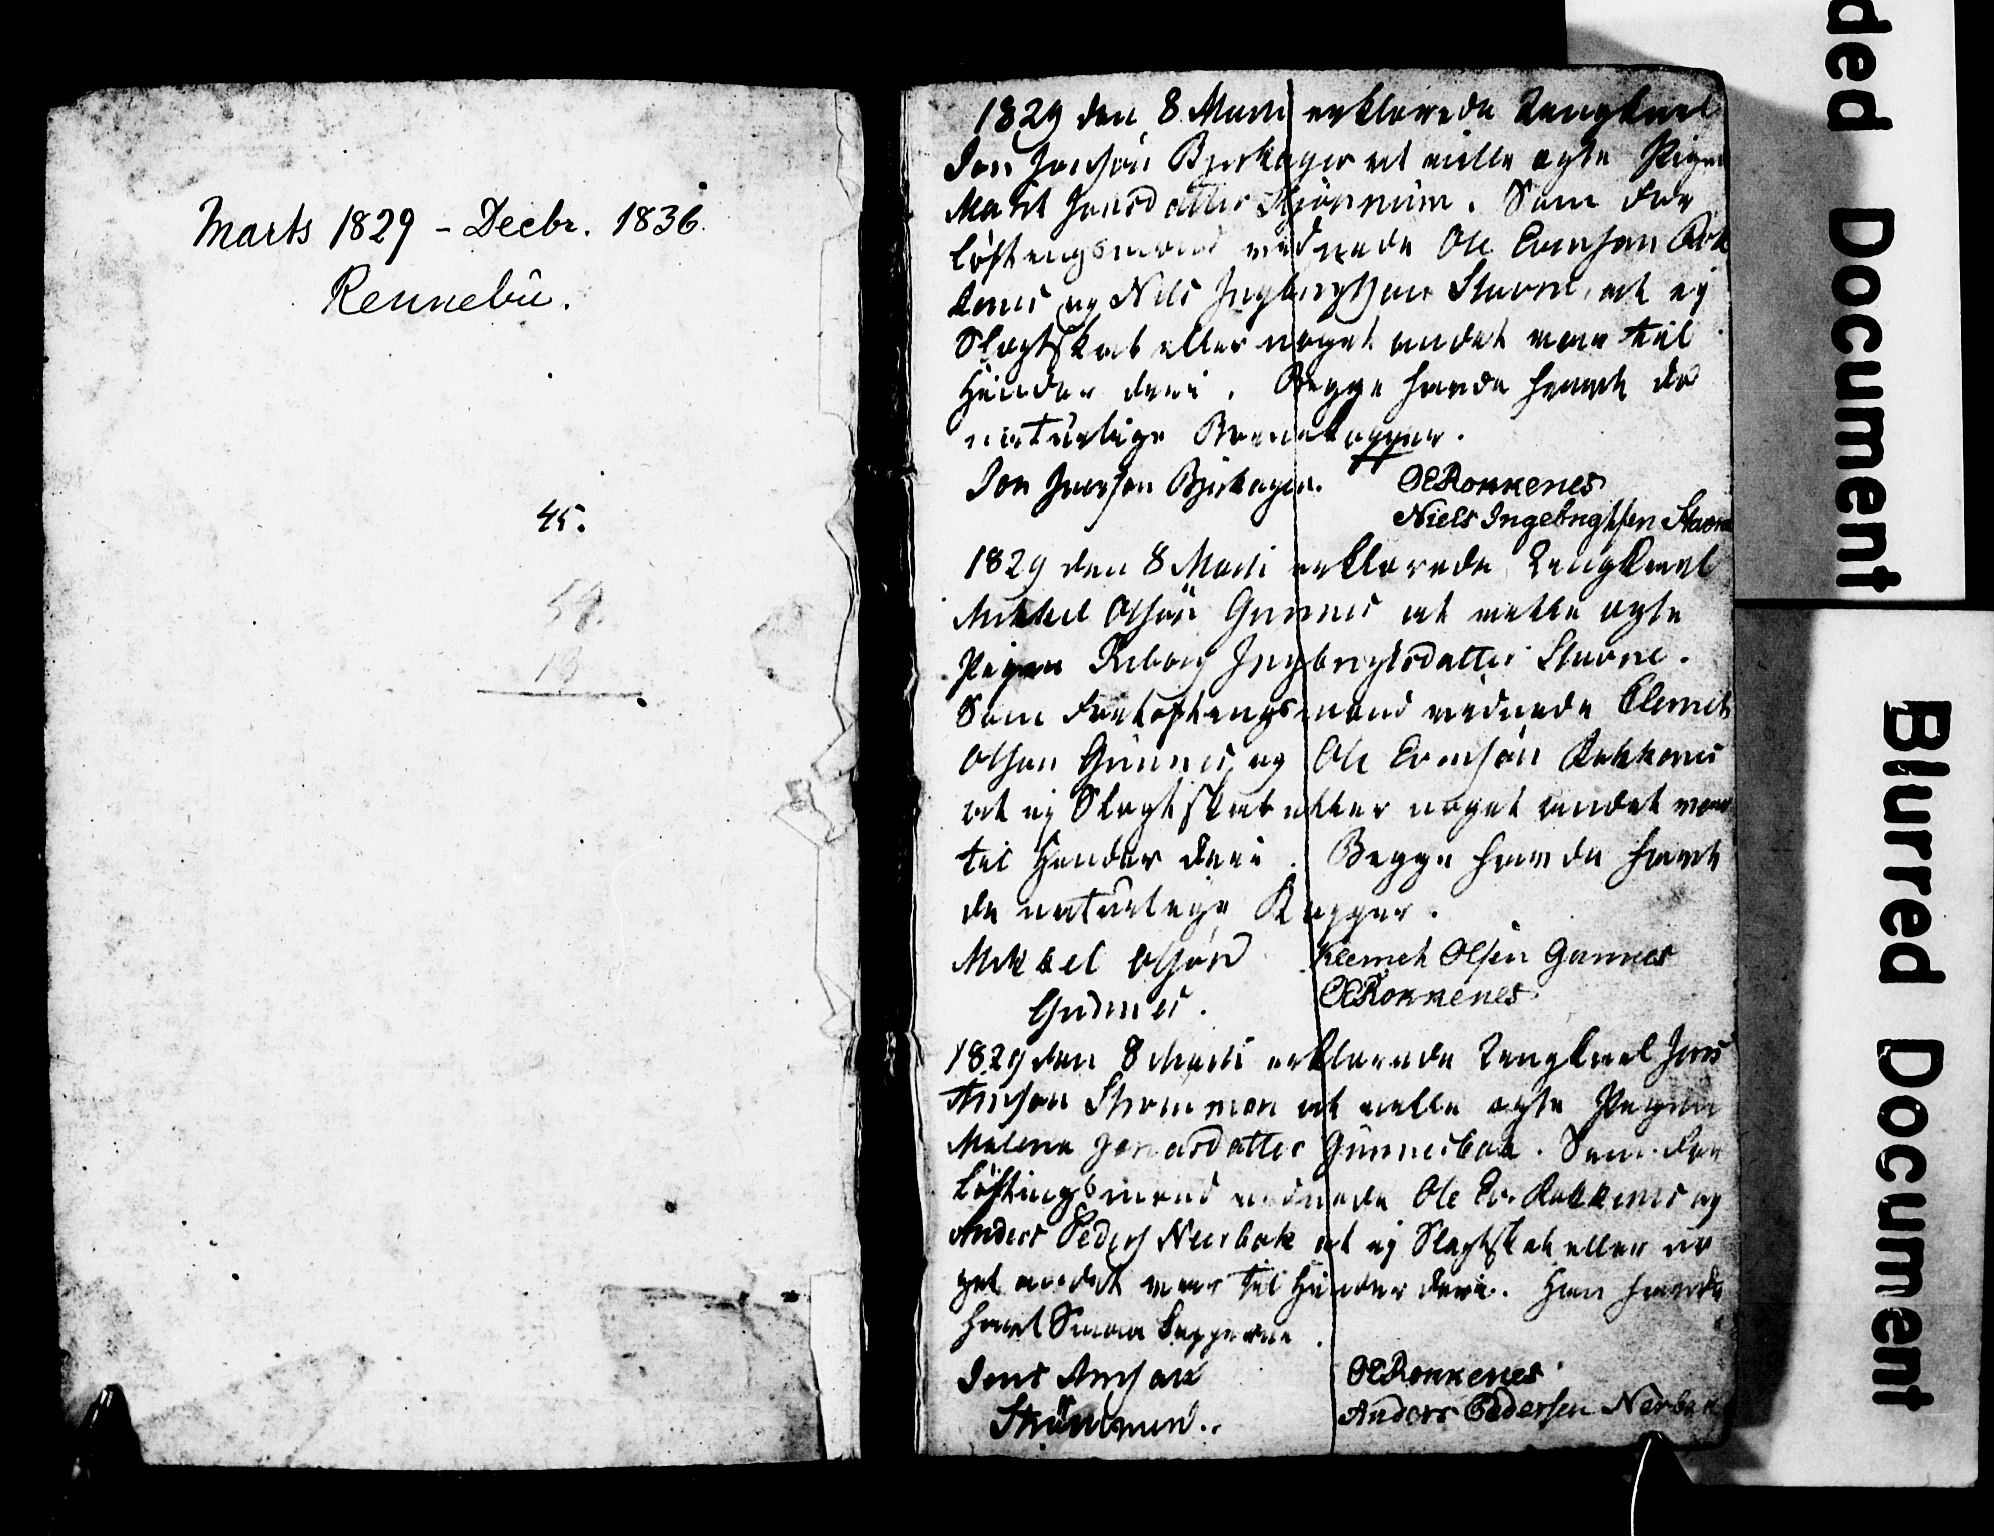 Marts 1829 - Decbr. 1836.
Rennebu.
45.
59.
13
1829 den 8 Marti erklærede Ungkarl
Jon Jonsön Bjerkager at ville ægte Pigen
Marit Jonsdatter . Som For
löftningsmænd vidnede Ole Evensøn Rok
kenes og Nils Ingebrigtsen Stavne, at ej
Slægtskab eller noget andet var til
Hinder deri. Begge havde havt de
naturlige Børnekopper.
Jon Jonsøn Bjerkager. OERokkenes
Niels Ingebrigtsen Stavne
1829 den 8 Marti erklærede Ungkarl
Mikkel Olsön Gunnes at ville ægte
Pigen Ingebrigtsdatter Stavne.
Som Forlöftningsmænd vidnede Clemet
Olsøn Gunnes, og Ole Evensön Rokkenes
at ej Slægtskab eller noget andet var
til Hinder deri. Begge havde havt
de naturlige Kopper.
Mikkel Olsön Klemet Olsen Gunnes
Gunnes. OERokkenes
1829 den 8 Marti erklærede Ungkarl Jens
Arntsøn Strømmen at ville ægte Pigen
Malena Jonasdatter Gunnesbak. Som For
löftningsmænd vidnede Ole Ev. Rokkenes og
Anders Peders Neerbak at ej Slægtskab eller no
get andet var til Hinder deri. Han havde
havt Smaa kopperne.
Jens Arntsøn OERokkenes
Strömmen. Anders Pedersen Nerbak
ded Document
Blurred Document